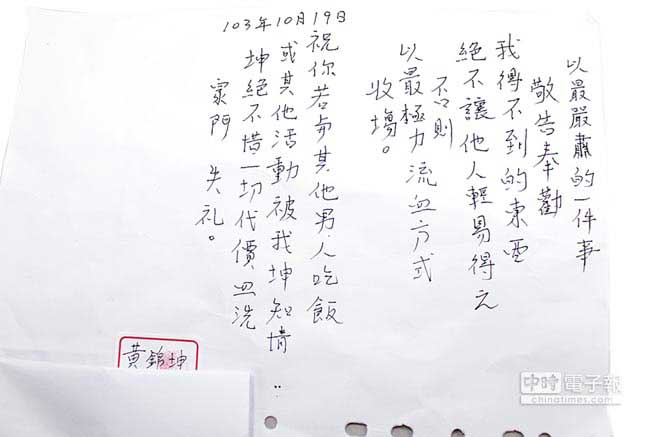 以最嚴肅的一件事
敬告奉勸
我得不到的東西
絕不讓他人輕易得之
否則
以最極力流血方式
收場。
祝你若与其他男人吃飯
或其他活動被我坤知情‥
坤絕不惜一切代價血洗
家門 失礼。
103年10月19日
黃錦坤
中時電子報
chinatimes.com